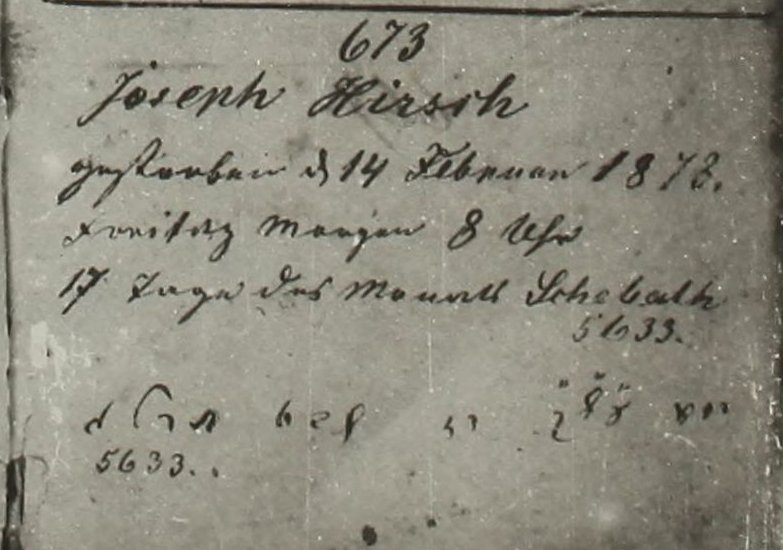 673
Joseph Hirsch
gestorben d 14 Februar 1873.
Freitag Morgen 8 Uhr
17 Tage des Monats Schebath
5633.
5633..